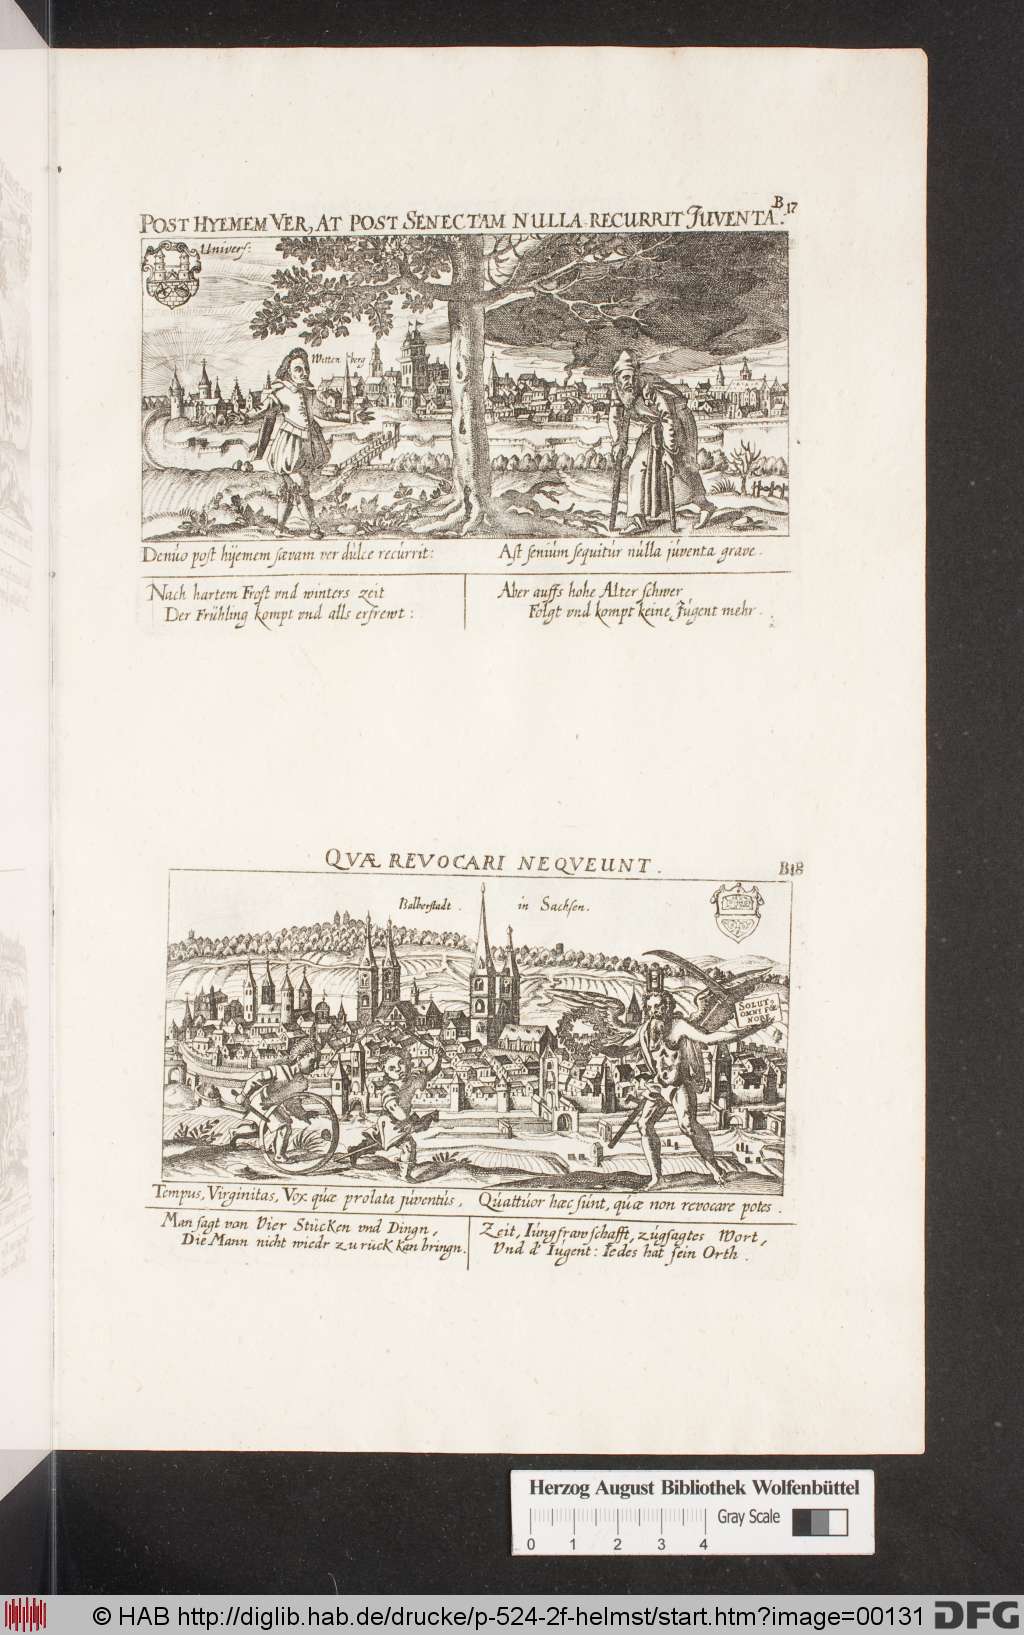 POST HYEMEM VER, AT POST SENECTAM NULLA RECURRIT JUVENTA.
B 17
Univers:
Witten berg
Denuo post hyemem sævam ver dulce recurrit:
Ast senium sequitur nulla juventa grave.
Nach hartem Frost vnd winters zeit
Der Frühling kompt vnd alls erfrewt:
Aber auffs hohe Alter schwer
Folgt vnd kompt keine Jugent mehr.
QVÆ REVOCARI NEQVEUNT.
B18
Halberstadt. in Sachsen.
SOLUTO
OMNI FŒ
NORE
Tempus, Virginitas, Vox quæ prolata juventus,
Quattuor hæc sunt, quæ non revocare potes.
Man sagt von Vier Stücken vnd Dingn,
Die Mann nicht wiedr zu rück kan bringn.
Zeit, Jungfrawschafft, zugsagtes Wort,
Vnd d' Jugent: Jedes hat sein Orth.
Herzog August Bibliothek Wolfenbüttel
Gray Scale
0 1 2 3 4
© HAB http://diglib.hab.de/drucke/p-524-2f-helmst/start.htm?image=00131
DFG